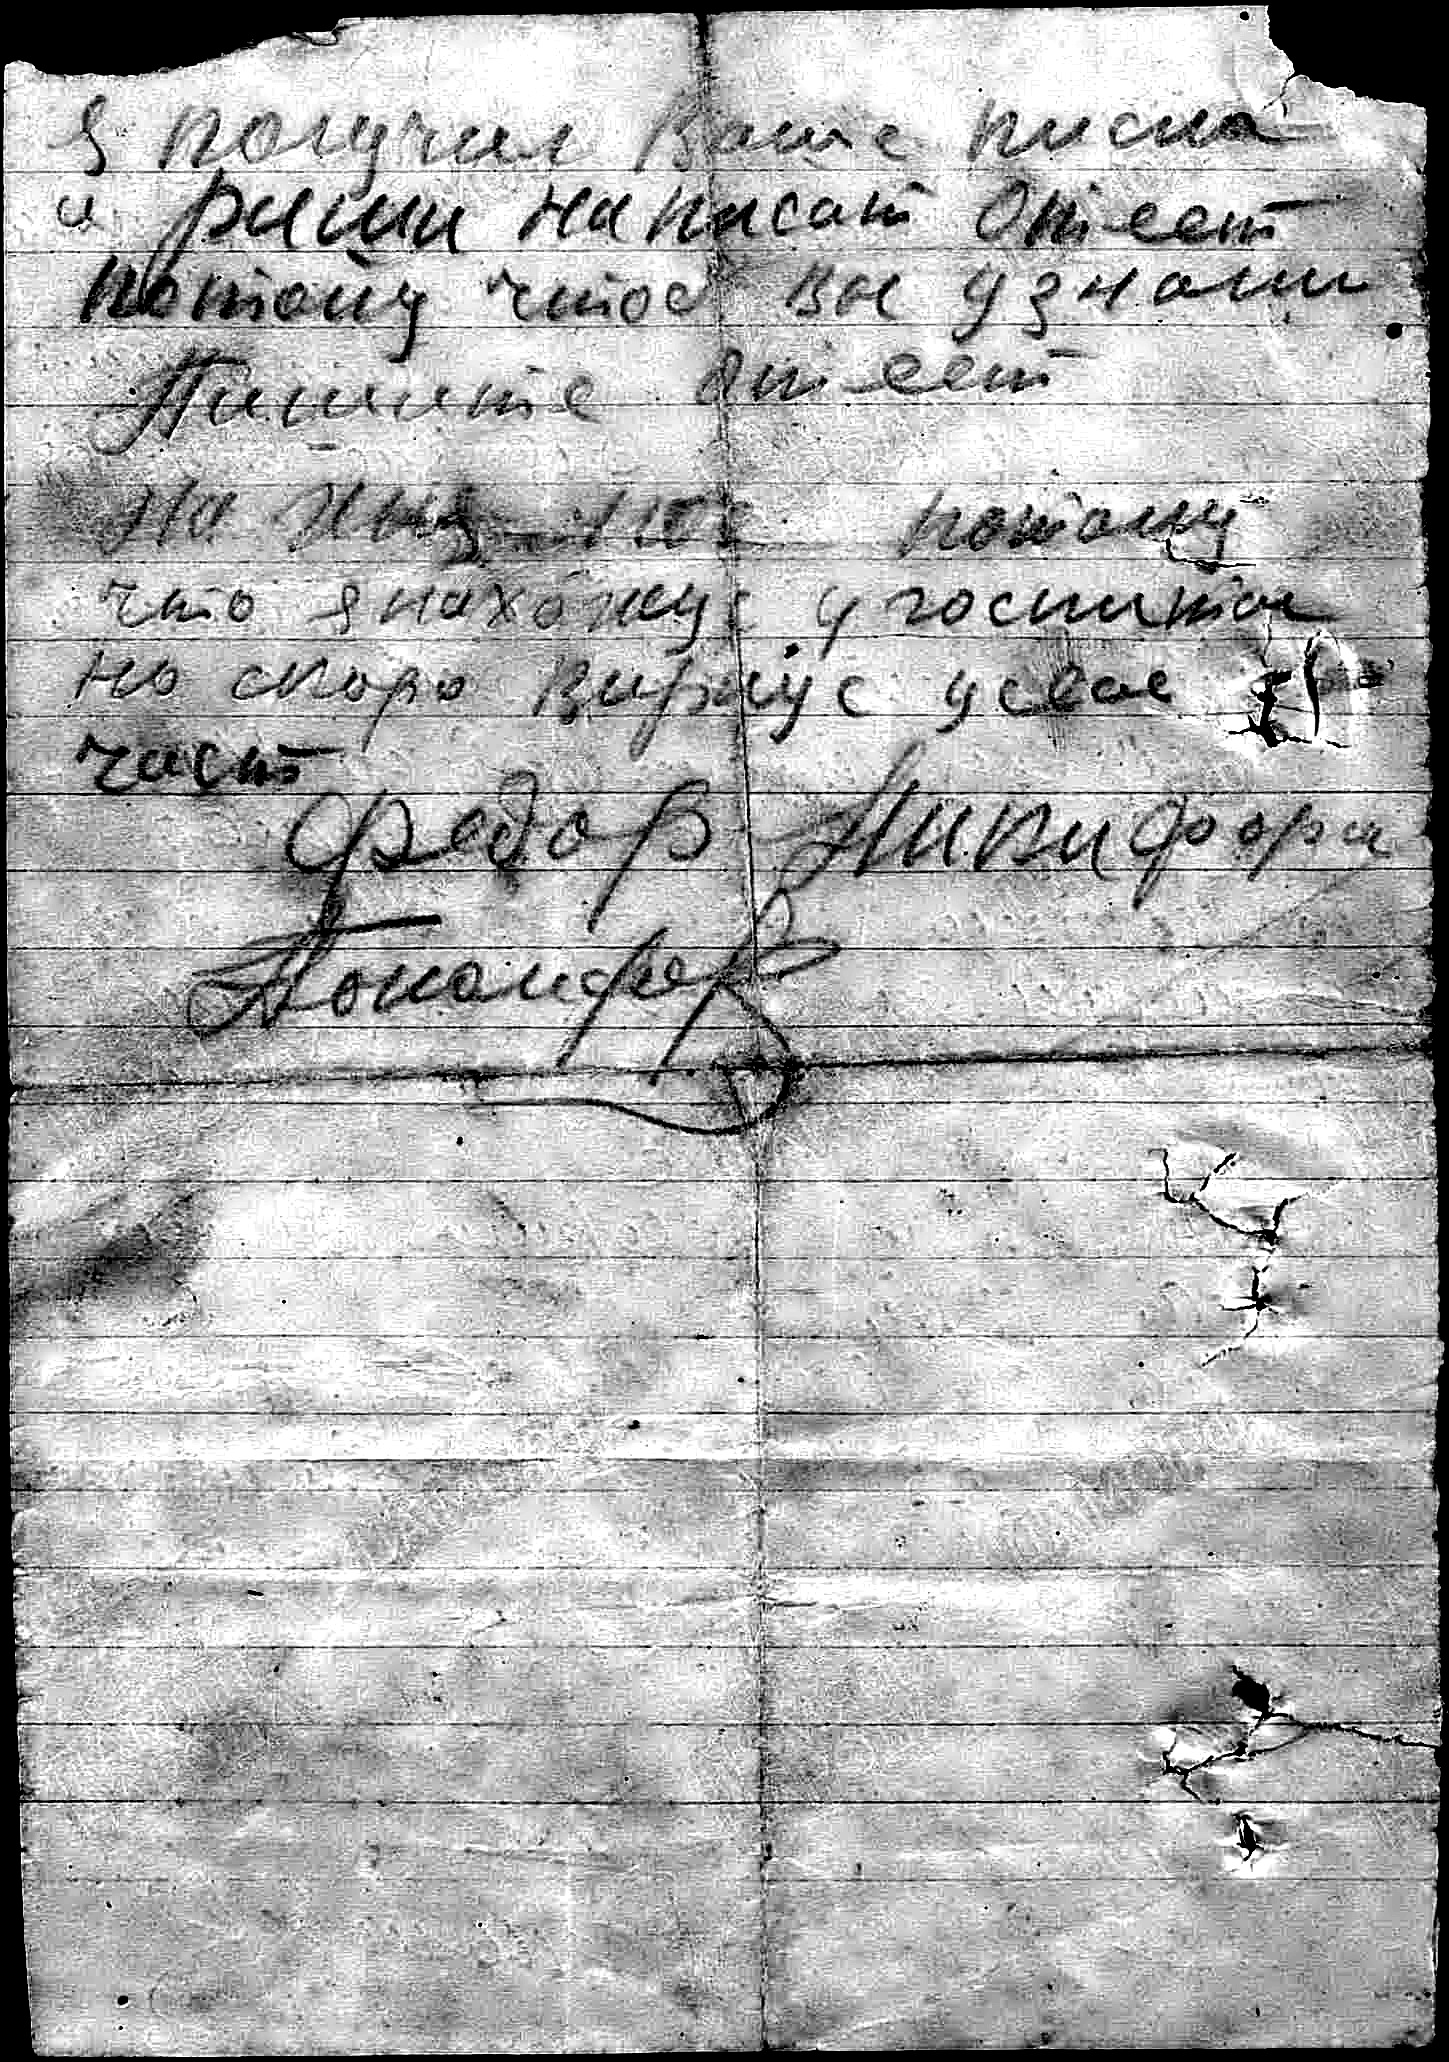 Я получил Ваше писма
и риши написат Ответ
потому чтоо вы узнали
Пишите Ответ
на потому
что я нахожус у госпитал
но скоро вирнус у свое
част
Федор Никифори